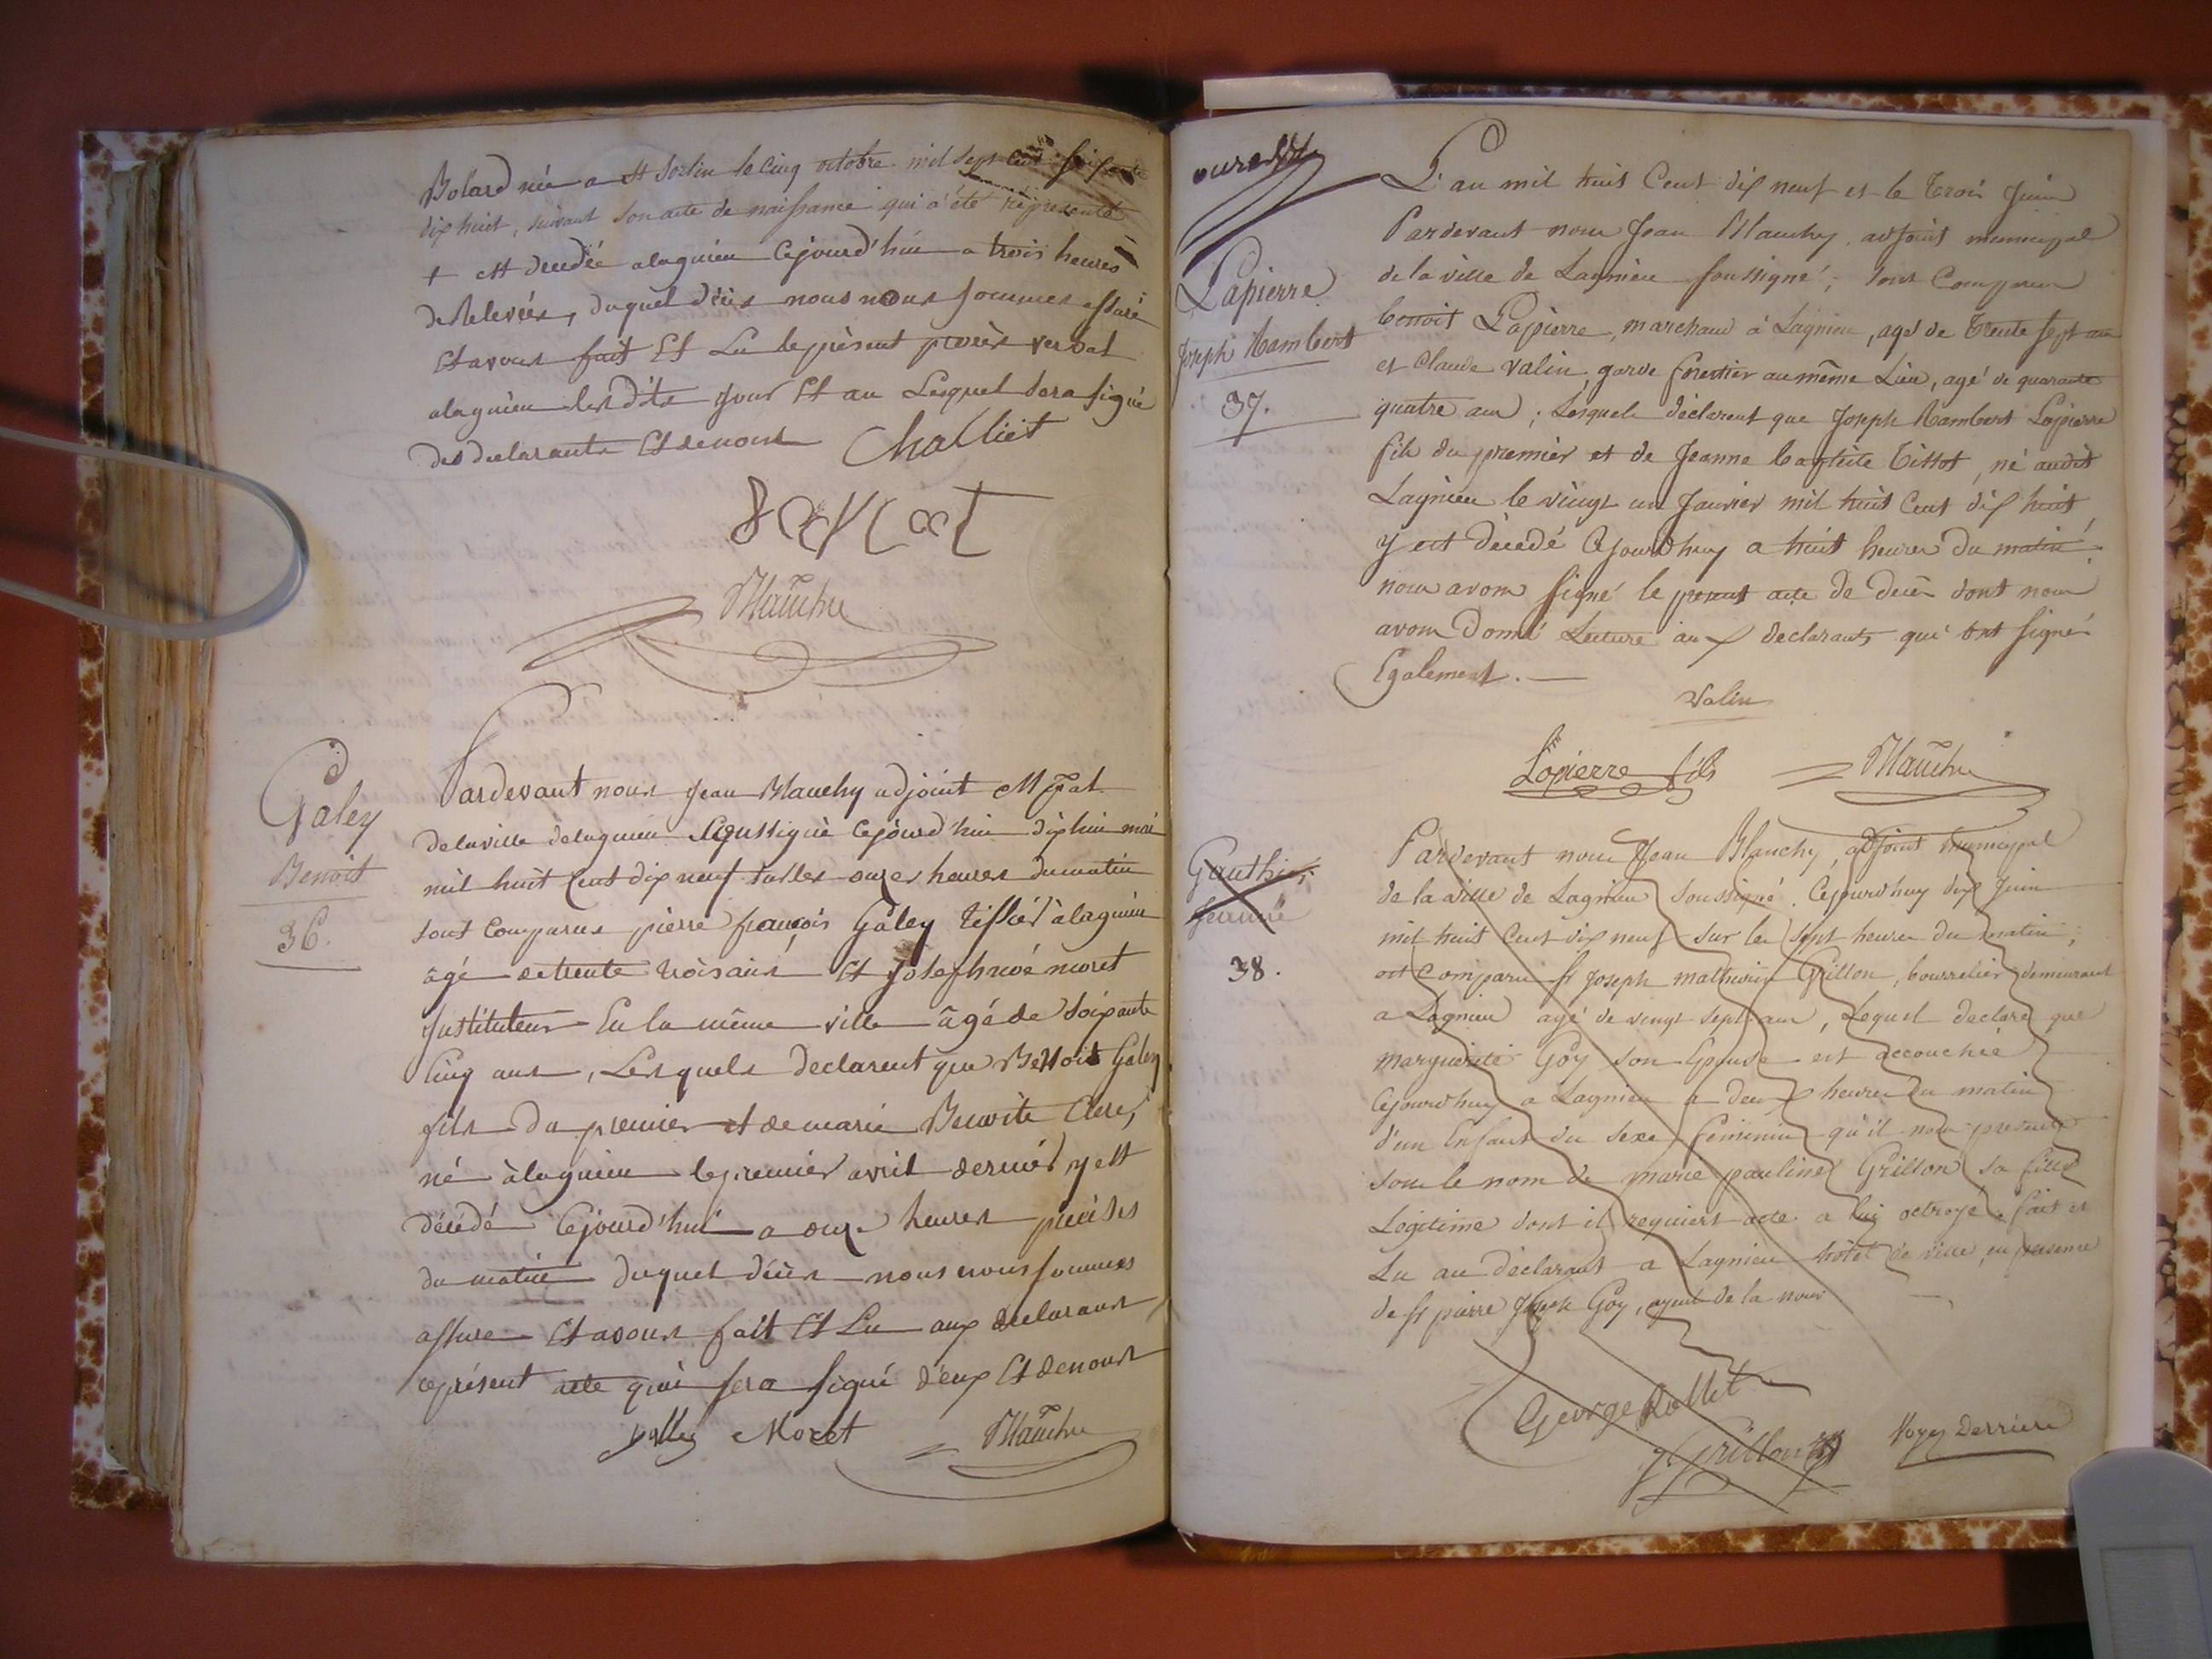 Bolard née a St Sorlin le cinq octobre mil sept cent soixante
dix huit, suivant son acte de naissance qui a été représenté
+ est decedée alagnieu cejourd'hui a trois heures
de Relevées, duquel décès nous nous sommes assuré
Et avons fait Et Lu le présent procès verbal
alagnieu lesdits jour Et an Lequel sera signé
des declarants Et de nous Challiet
Blanchy
Galey
Benoit
36.
Pardevant nous Jean Blanchy adjoint Mpal
delaville delagnieu soussigné cejourd'hui dix huit mai
mil huit Cent dix neuf sur les onze heures du matin
sont Comparus pierre françois Galey tissier àlagnieu
âgé de trente trois ans Et Joseph moret
Instituteur En la même ville âgé de soixante
Cinq ans, Lesquels declarent que Benoit Galey
fils du premier et de marie Benoite Clerc,
né àlagnieu le premier avril dernier y est
décédé Cejourd'hui a onze heures précises
du matin duquel décès nous nous sommes
assure Et avons fait Et Lu aux declarans
le présent acte qui sera signé d'eux Et de nous
galley Moret Blanchy
Lapierre
Joseph Rambert
37.
L'an mil huit Cent dix neuf et le trois Juin
Pardevant nous Jean Blanchy adjoint municipal
de la ville de Lagnieu soussigné; sont Comparus
benoit Lapierre, marchand à Lagnieu, agé de trente sept ans
et Claude Valin, garde forestier au même Lieu, agé de quarante
quatre ans; Lesquels déclarent que Joseph Rambert Lapierre
fils du premier et de Jeanne baptiste Tissot, né audit
Lagnieu le vingt un Janvier mil huit Cent dix huit
y est décédé Cejourdhuy a huit heures du matin.
nous avons signé le présent acte de décès dont nous
avons Donné Lecture aux declarants qui ont signé
Egalement.
Valin
Lapierre fils Blanchy
Gauthier
femme
38.
Pardevant nous Jean Blanchy, adjoint municipal
de la ville de Lagnieu soussigné. Cejourdhuy dix Juin
mil huit Cent dix neuf sur les sept heures du matin;
est Comparu sr Joseph mathurin Grillon, bourrelier demeurant
a Lagnieu agé de vingt sept ans, Lequel declare que
marguerite Goy son Epouse est accouchée
Cejourdhuy a Lagnieu a deux heures du matin
d'un Enfant du sexe feminin qu'il nous presente
sous le nom de marie pauline Grillon sa fille
Legitime dont il requiert acte a lui octroyé, fait et
Lu au déclarant a Lagnieu hôtel de ville, en presence
de sr pierre Joseph Goy, ayeul de la nour
George Rollet
J Grillon
Voyez Derriere